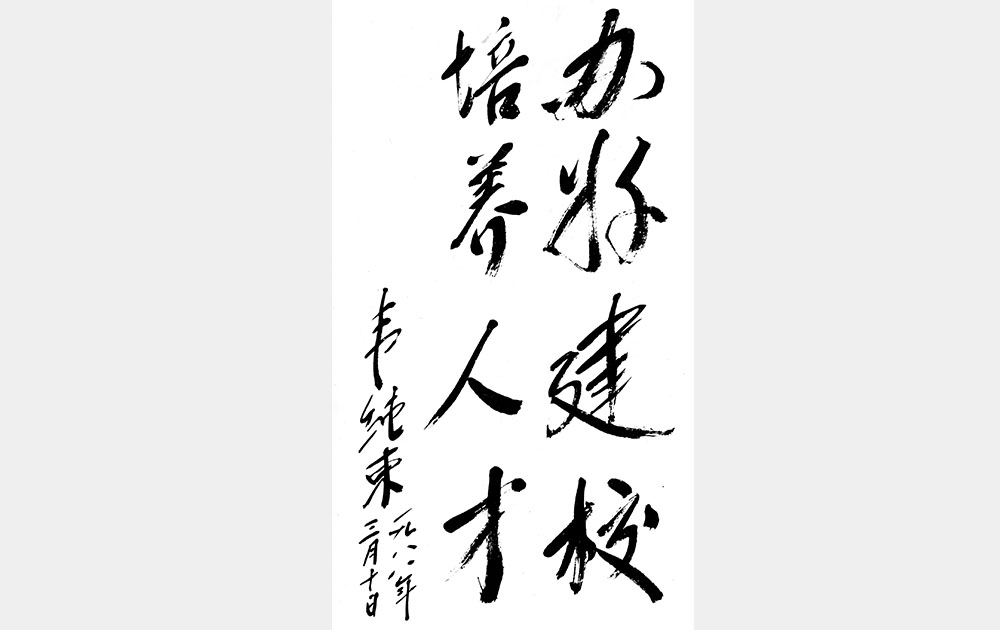 办好建校
培养人才
韦纯束
一九八八年
三月十日